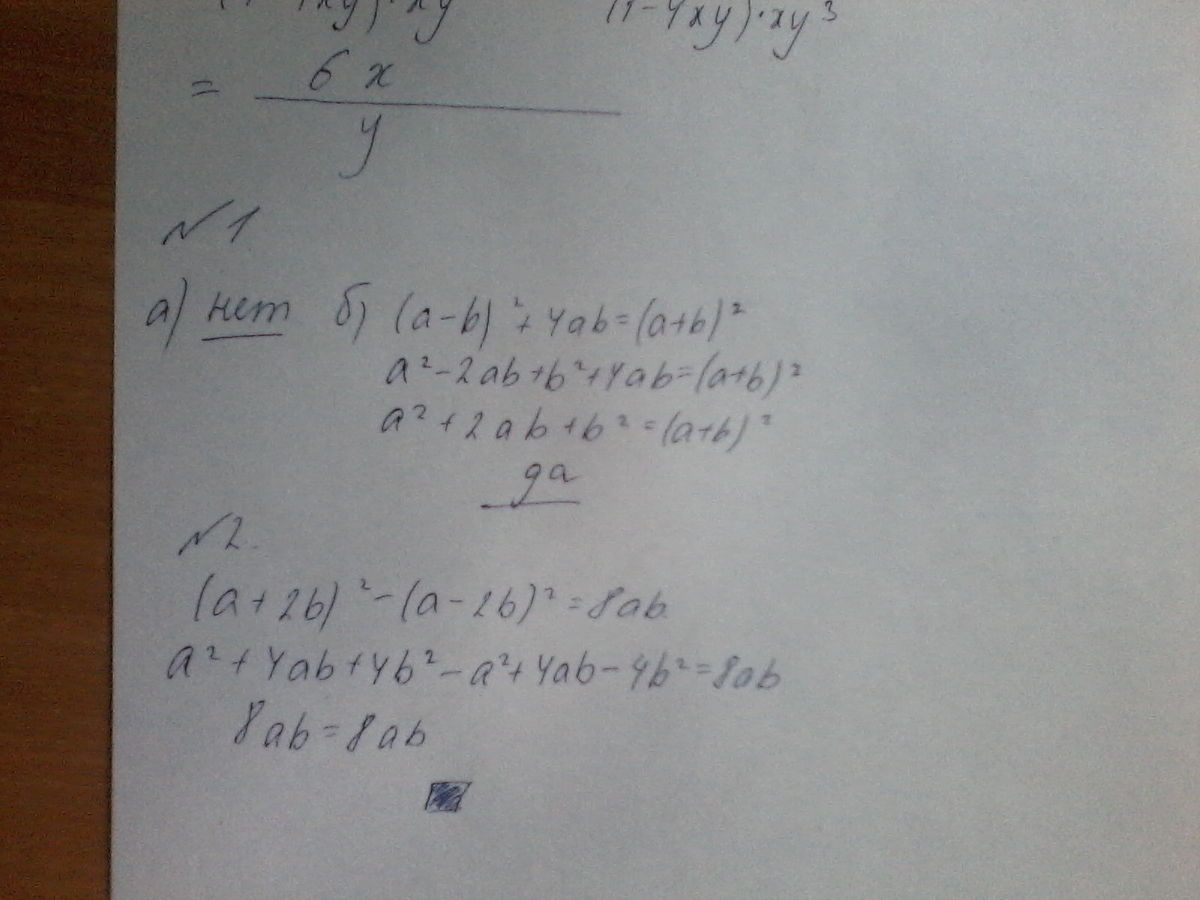 (1-4xy)·xy³
= 6x
y
№1
а) нет б) (a-b)²+4ab=(a+b)²
a²-2ab+b²+4ab=(a+b)²
a²+2ab+b²=(a+b)²
да
№2.
(a+2b)²-(a-2b)²=8ab
a²+4ab+4b²-a²+4ab-4b²=8ab
8ab=8ab